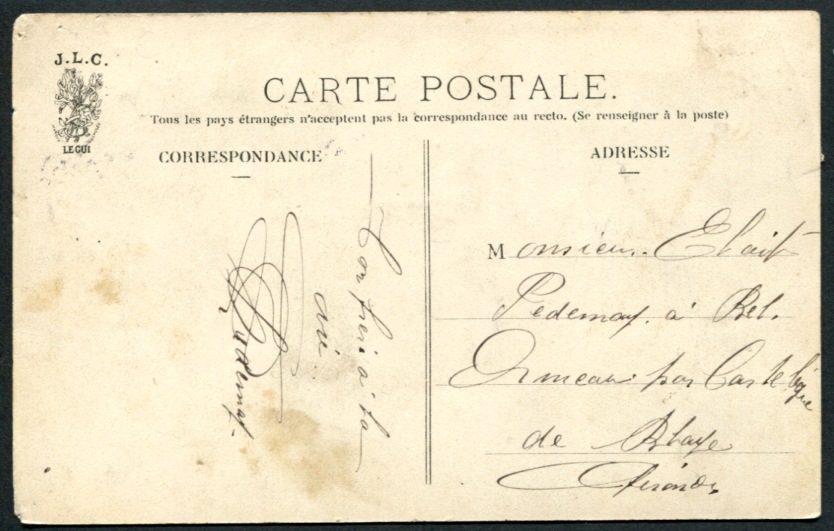 J.L.C.
LE GUI
CARTE POSTALE.
Tous les pays étrangers n'acceptent pas la correspondance au recto. (Se renseigner à la poste)
CORRESPONDANCE
ton frère a ta
vie
Pedemay
ADRESSE
Monsieur Elait
Pedemay. à Bel.
Ormeau par Cartelègue
de Blaye
Gironde